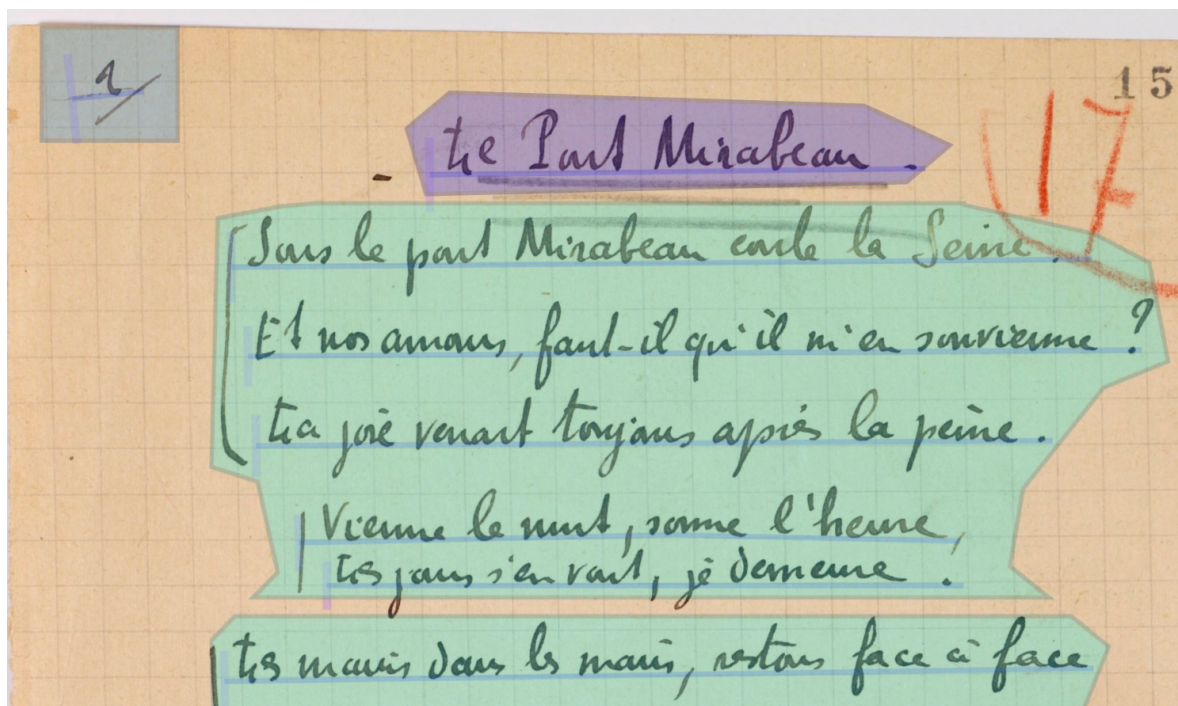 1/
15
17
- Le Pont Mirabeau .
Sous le pont Mirabeau coule la Seine.
Et nos amours, faut-il qu'il m'en souvienne ?
La joie venait toujours après la peine.
Vienne la nuit, sonne l'heure,
Les jours s'en vont, je demeure.
Les mains dans les mains, restons face à face